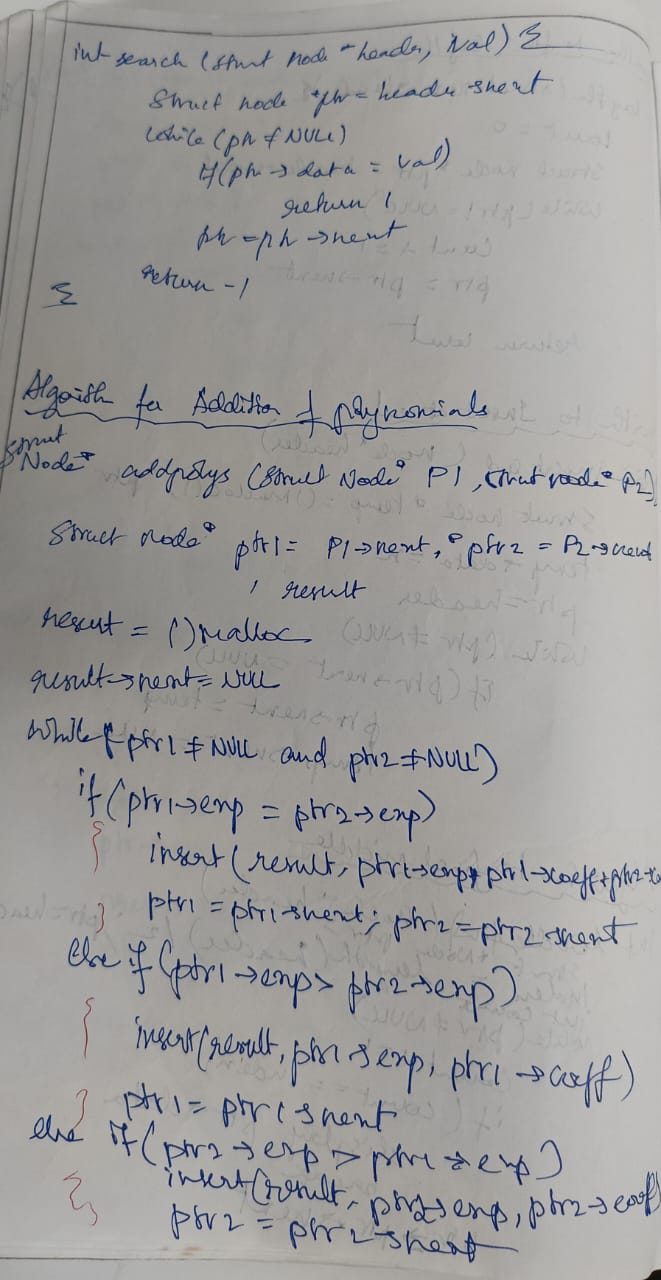 int search (struct node *header, val) {
struct node *ptr = header→next
while (ptr ≠ NULL)
if (ptr → data = val)
return 1
ptr = ptr →next
return -1
}
Algorith for Addition of polynomials
struct
Node* addpolys (struct Node* P1, struct node* P2)
struct node* ptr1 = P1→next, *ptr2 = P2→next
, result
result = ()malloc
result→next = NULL
while (ptr1 ≠ NULL and ptr2 ≠ NULL)
if (ptr1→exp = ptr2→exp)
{ insert (result, ptr1→exp, ptr1→coeff+ptr2→co
} ptr1 = ptr1→next; ptr2 = ptr2→next
else if (ptr1 →exp > ptr2→exp)
{ insert(result, ptr1→exp, ptr1 →coeff)
} ptr1 = ptr1→next
else if (ptr2 →exp > ptr1 →exp)
{ insert(result, ptr2→exp, ptr2→coeff)
} ptr2 = ptr2→next